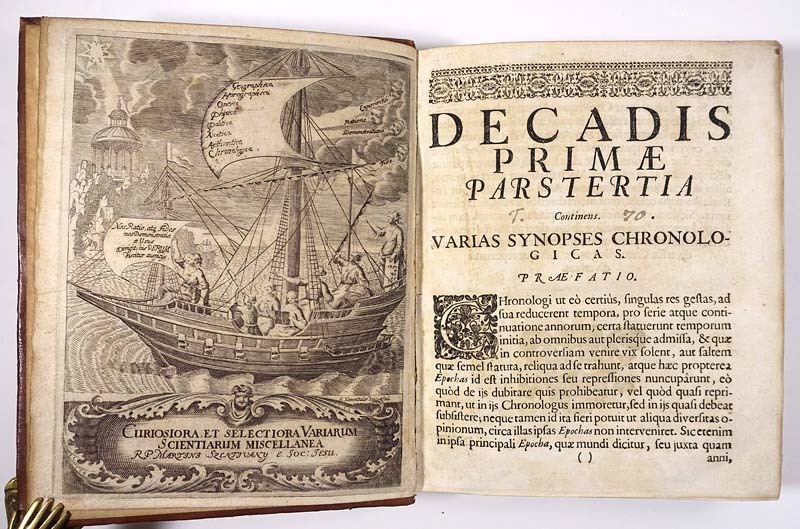 Geographica
Optica
Physica
Politica
Arithmetica
Chronologica
Experientia
Ratione
Demonstratione
Nos Ratio, atq; Ædes
nos Demonstratio
et Usus
CURIOSIORA ET SELECTIORA VARIARUM
SCIENTIARUM MISCELLANEA
R.P. MARTINI SZENTIVANY E. SOC: JESU.
DECADIS
PRIMÆ
PARS TERTIA
T. Continens. 70.
VARIAS SYNOPSES CHRONOLO-
GICAS.
PRÆFATIO.
CHronologi ut eò certiùs, singulas res gestas, ad
sua reducerent tempora, pro serie atque conti-
nuatione annorum, certa statuerunt temporum
initia, ab omnibus aut plerisque admissa, & quæ
in controversiam venire vix solent, aut saltem
quæ semel statuta, reliqua ad se trahunt, atque hæc propterea
Epochas id est inhibitiones seu repressiones nuncupârunt, eò
quòd de ijs dubitare quis prohibeatur, vel quòd quasi repri-
mant, ut in ijs Chronologus immoretur, sed in ijs quasi debeat
subsistere, neque tamen id ita fieri potuit ut aliqua diversitas o-
pinionum, circa illas ipsas Epochas non interveniret. Sic etenim
in ipsa principali Epocha, quæ mundi dicitur, seu juxta quam
( ) anni,